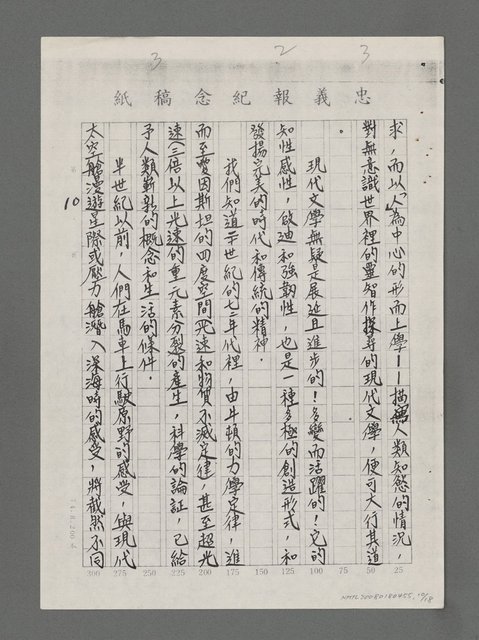 3 2 3
忠義報紀念稿紙
求，而以「人」為中心的形而上學——描繪人類知慾的情況，
對無意識世界裡的靈智作探尋的現代文學，便可大行其道
。
現代文學無疑是展延且進步的！多變而活躍的！它的
知性感性，啟迪和強韌性，也是一種多極的創造形式，和
發揚完美的時代和傳統的精神。
我們知道二十世紀的七十年代裡，由牛頓的力學定律，進
而至愛因斯坦的四度空間光速和物質不滅定律，甚至超光
速三倍以上光速的重元素分裂的產生，科學的論証，已給
予人類嶄新的概念和生活的條件。
半世紀以前，人們在馬車上行駛原野的感受，與現代
太空艙漫遊星際或壓力艙潛入深海時的感受，將截然不同
10
25 50 75 100 125 150 175 200 225 250 275 300
NMTL20080180455, 10/18